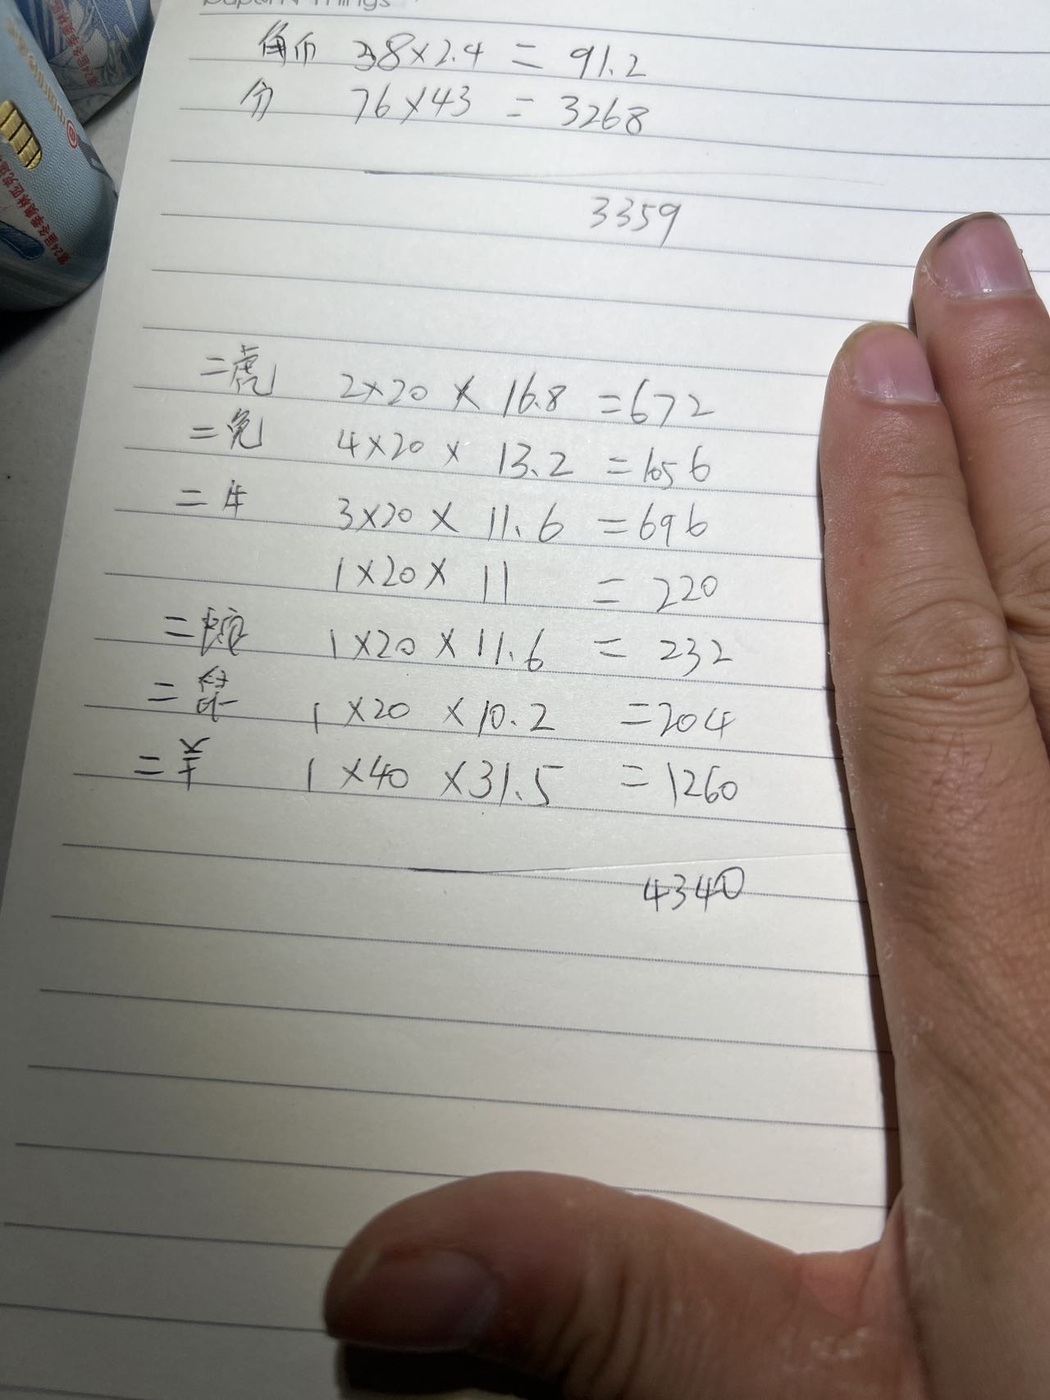 角币 38×2.4 = 91.2
分 76×43 = 3268
3359
二虎 2×20 × 16.8 =672
二兔 4×20 × 13.2 =1056
二牛 3×20 × 11.6 =696
1×20× 11 = 220
二龙 1×20 ×11.6 = 232
二鼠 1 ×20 ×10.2 =204
二羊 1 ×40 ×31.5 =1260
4340